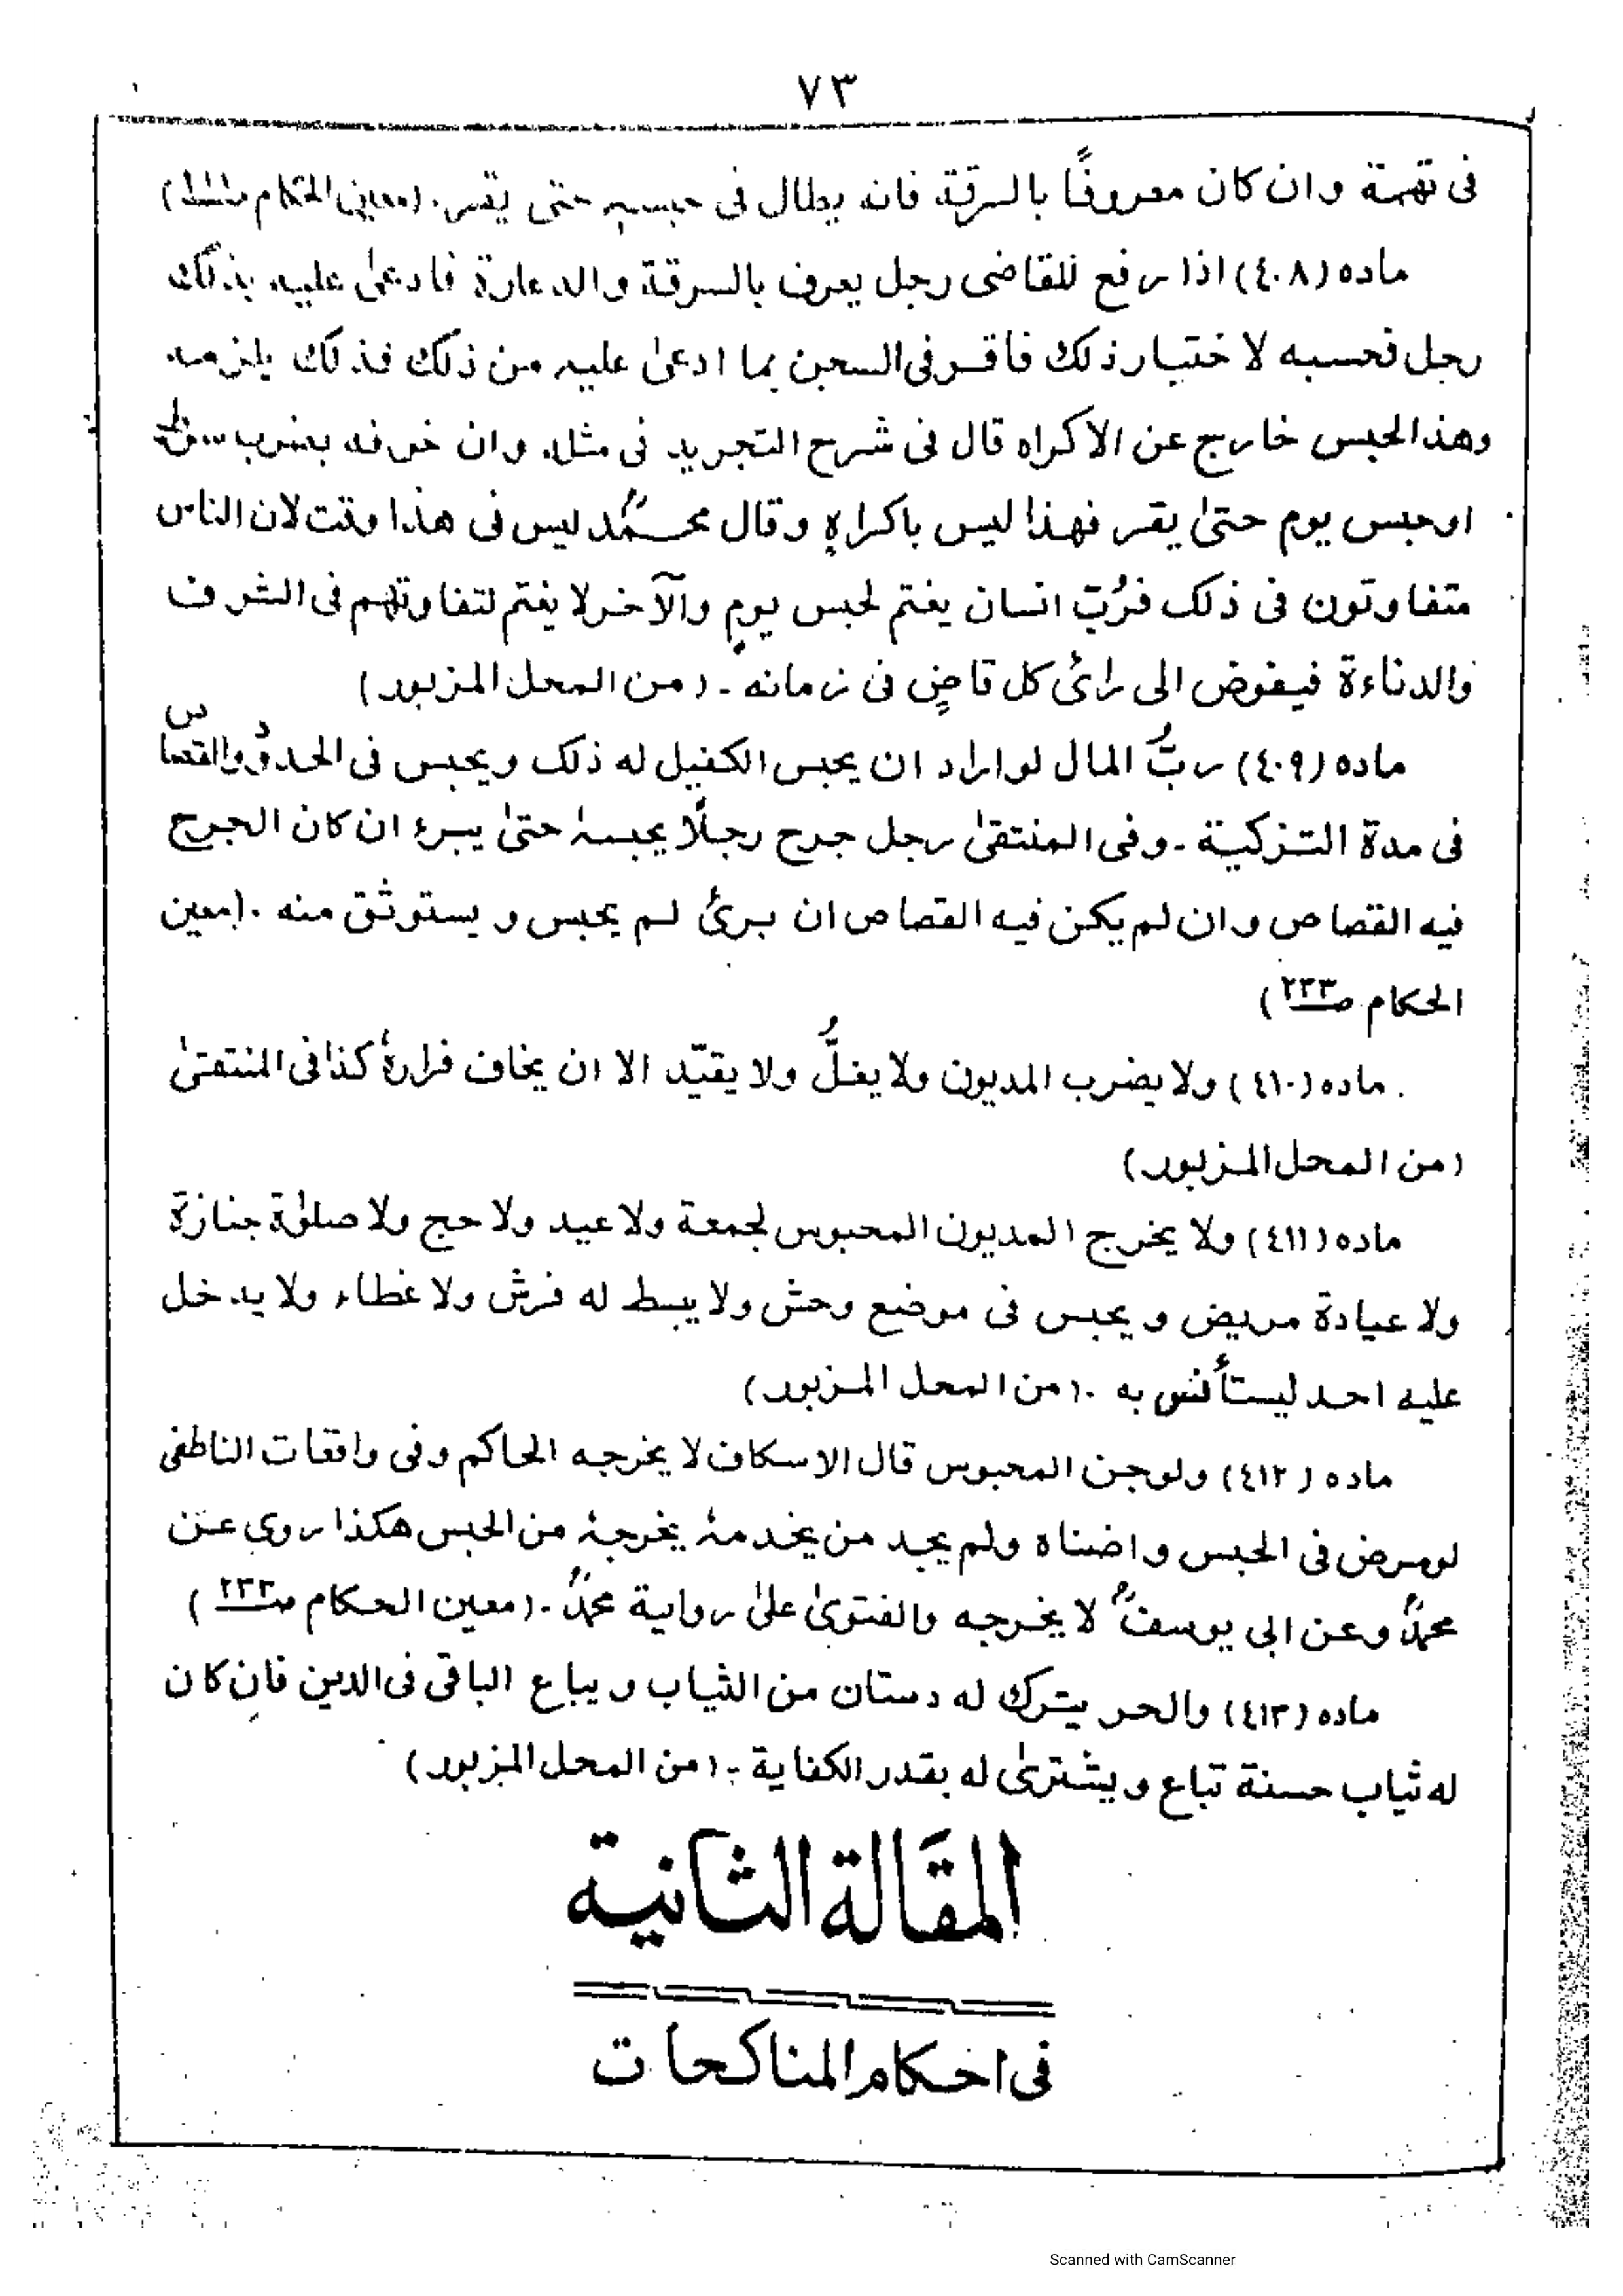 ٧٣
فى تهمة وان كان معروفًا بالسرقة فانه يطال فى حبسه حتى يقر. (معين الحكام
ماده (٤٠٨) اذا رفع للقاضى رجل يعرف بالسرقة والدعارة فادعىٰ عليه بذلك
رجل فحسبه لاختبار ذلك فاقر فى السجن بما ادعىٰ عليه من ذلك فذلك يلزمه
وهذا الحبس خارج عن الاكراه قال فى شرح التجريد فى مثله وان خوفه بضرب سوط
او حبس يوم حتىٰ يقر فهذا ليس باكراهٍ وقال محمدؒ ليس فى هذا وقت لان الناس
متفاوتون فى ذلك فرُبّ انسان يغتم لحبس يومٍ والآخر لا يغتم لتفاوتهم فى الشرف
والدناءة فيفوض الى رائ كل قاضٍ فى زمانه ۔ (من المحل المزبور)
ماده (٤٠٩) ربُّ المال لو اراد ان يحبس الكفيل له ذلك ويحبس فى الحدود والقصاص
فى مدة التزكية ۔ وفى المنتقىٰ رجل جرح رجلًا يحبسہٗ حتىٰ يبرء ان كان الجرح
فيه القصاص وان لم يكن فيه القصاص ان برئ لم يحبس و يستوثق منه ۔ (معين
الحكام صـ ٢٣٣)
ماده (٤١٠) ولا يضرب المديون ولا يغلُّ ولا يقيّد الا ان يخاف فرارهٗ كذا فى المنتقىٰ
(من المحل المزبور)
ماده (٤١١) ولا يخرج المديون المحبوس لجمعة ولا عيد ولا حج ولا صلوٰة جنازة
ولا عيادة مريض و يحبس فى موضع وحش ولا يبسط له فرش ولا غطاء ولا يدخل
عليه احد ليستأنس به ۔ (من المحل المزبور)
ماده (٤١٢) ولو جن المحبوس قال الاسكاف لا يخرجه الحاكم وفى واقعات الناطفى
لو مرض فى الحبس واضناه ولم يجد من يخدمہٗ يخرجہٗ من الحبس هكذا روى عن
محمدؒ وعن ابى يوسفؒ لا يخرجه والفتوىٰ علىٰ رواية محمدؒ ۔ (معين الحكام صـ ٢٣٣)
ماده (٤١٣) والحر يترك له دستان من الثياب و يباع الباقى فى الدين فان كان
له ثياب حسنة تباع و يشترىٰ له بقدر الكفاية ۔ (من المحل المزبور)
المقالة الثانية
فى احكام المناكحات
Scanned with CamScanner